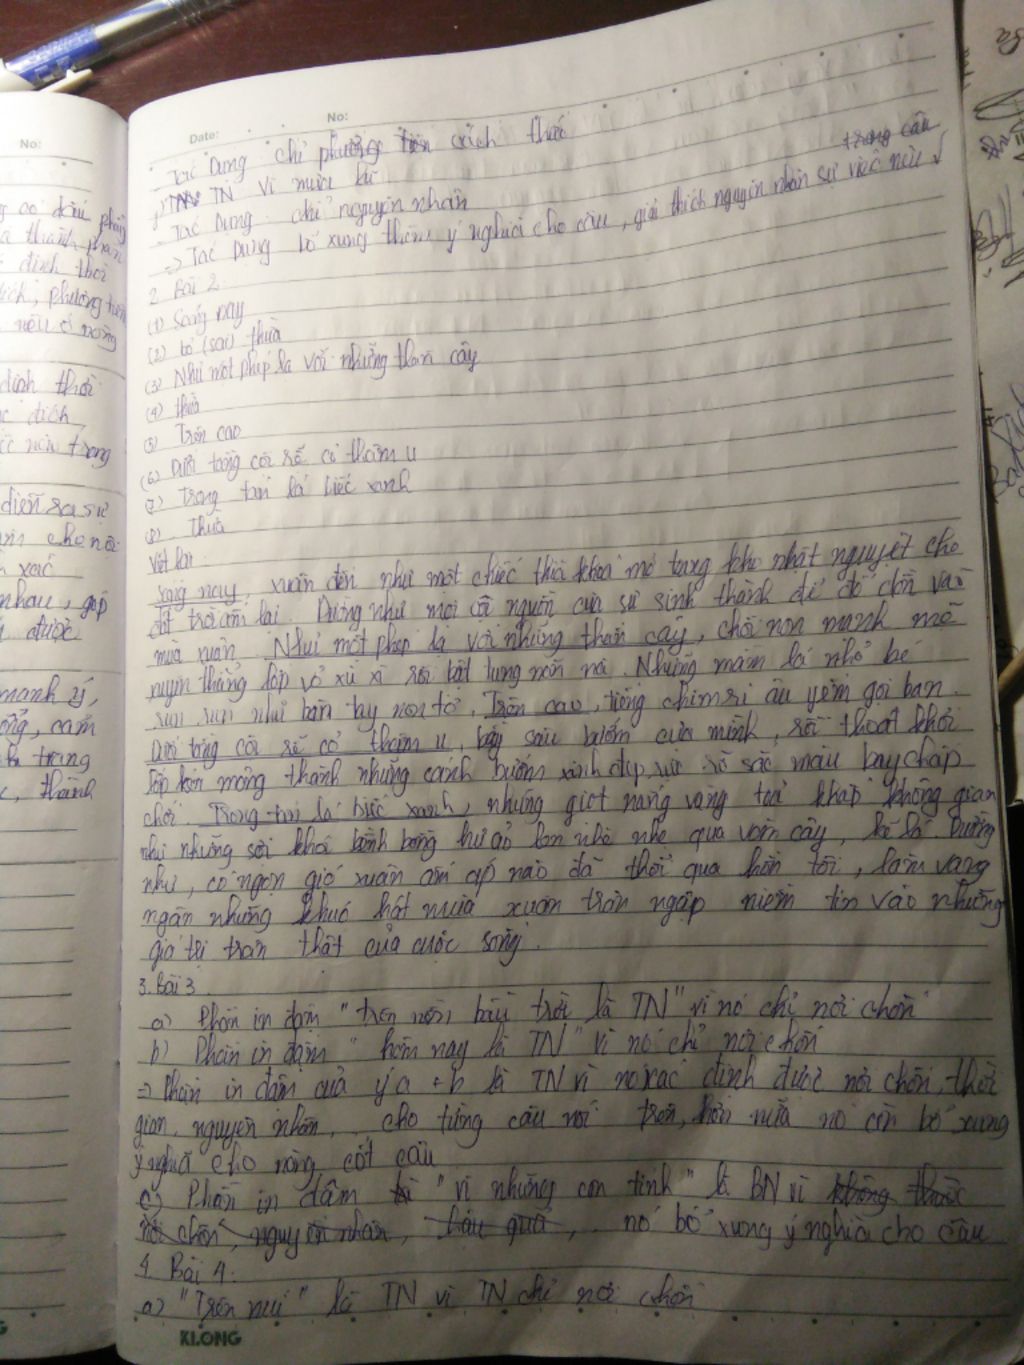 No:
có dấu phẩy
thành phần
định thời
đích, phương tiện
nêu ở trong
định thời
đích
nêu trong
diễn ra sự
cho nó
xác
nhau, góp
được
mạnh ý,
cảm
trung
thành
Date: No:
Tác Dụng chỉ phương tiện cách thức
TN Vì mưa lũ
. Tác Dụng chỉ nguyên nhân
trong câu
=> Tác Dụng bổ xung thêm ý nghĩa cho câu, giải thích nguyên nhân sự việc nêu √
2. Bài 2.
(1) Sáng nay
(2) bỏ (sai) thừa
(3) Như một phép lạ với những thân cây
(4) thừa
(5) Trên cao
(6) Dưới tầng cỏ rễ cỏ thâm u
(7) Trong tán lá biếc xanh
(8) Thừa
Viết lại:
Sáng nay, xuân đến như một chiếc thìa khóa mở tang kho nhật nguyệt cho
đất trời ấm lại. Dường như mọi cội nguồn của sự sinh thành để đổ dồn vào
mùa xuân. Như một phép lạ với những thân cây, chồi non mạnh mẽ
xuyên thẳng lớp vỏ xù xì rồi bật tung nõn nà. Những mầm lá nhỏ bé
run run như bàn tay non tơ. Trên cao, tiếng chim ri âu yếm gọi bạn.
Dưới tầng cỏ rễ cỏ thâm u, bầy sâu bướm của mình, rồi thoát khỏi
lớp kén mỏng thành những cánh bướm xinh đẹp, rực rỡ sắc màu bay chấp
chới. Trong tán lá biếc xanh, những giọt nắng vàng toả khắp không gian
như những sợi khói bềnh bồng hư ảo lan nhè nhẹ qua vòm cây, kẽ lá. Dường
như, có ngọn gió xuân ấm áp nào đã thổi qua hồn tôi, làm vang
ngân những khúc hát mùa xuân tràn ngập niềm tin vào những
giá trị chân thật của cuộc sống.
3. Bài 3.
a) Phần in đậm "trên nền bầu trời là TN" vì nó chỉ nơi chốn
b) Phần in đậm "hôm nay là TN" vì nó chỉ nơi chốn
=> Phần in đậm của ý a + b là TN vì nó xác định được nơi chốn, thời
gian, nguyên nhân,... cho từng câu nói trên, hơn nữa nó còn bổ xung
ý nghĩa cho nòng cốt câu
c) Phần in đậm là "vì những con tính" là BN vì không thuộc
nơi chốn, nguyên nhân, hậu quả, .. nó bổ xung ý nghĩa cho câu
4. Bài 4.
a) "Trên núi" là TN vì TN chỉ nơi chốn
KLONG